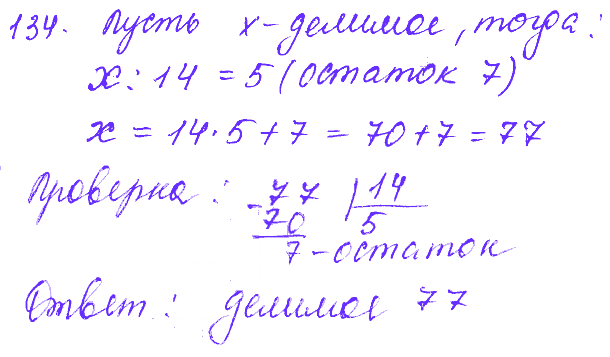 134. Пусть х - делимое, тогда:
х : 14 = 5 (остаток 7)
х = 14 · 5 + 7 = 70 + 7 = 77
Проверка: - 77 | 14
70 5
7 - остаток
Ответ: делимое 77